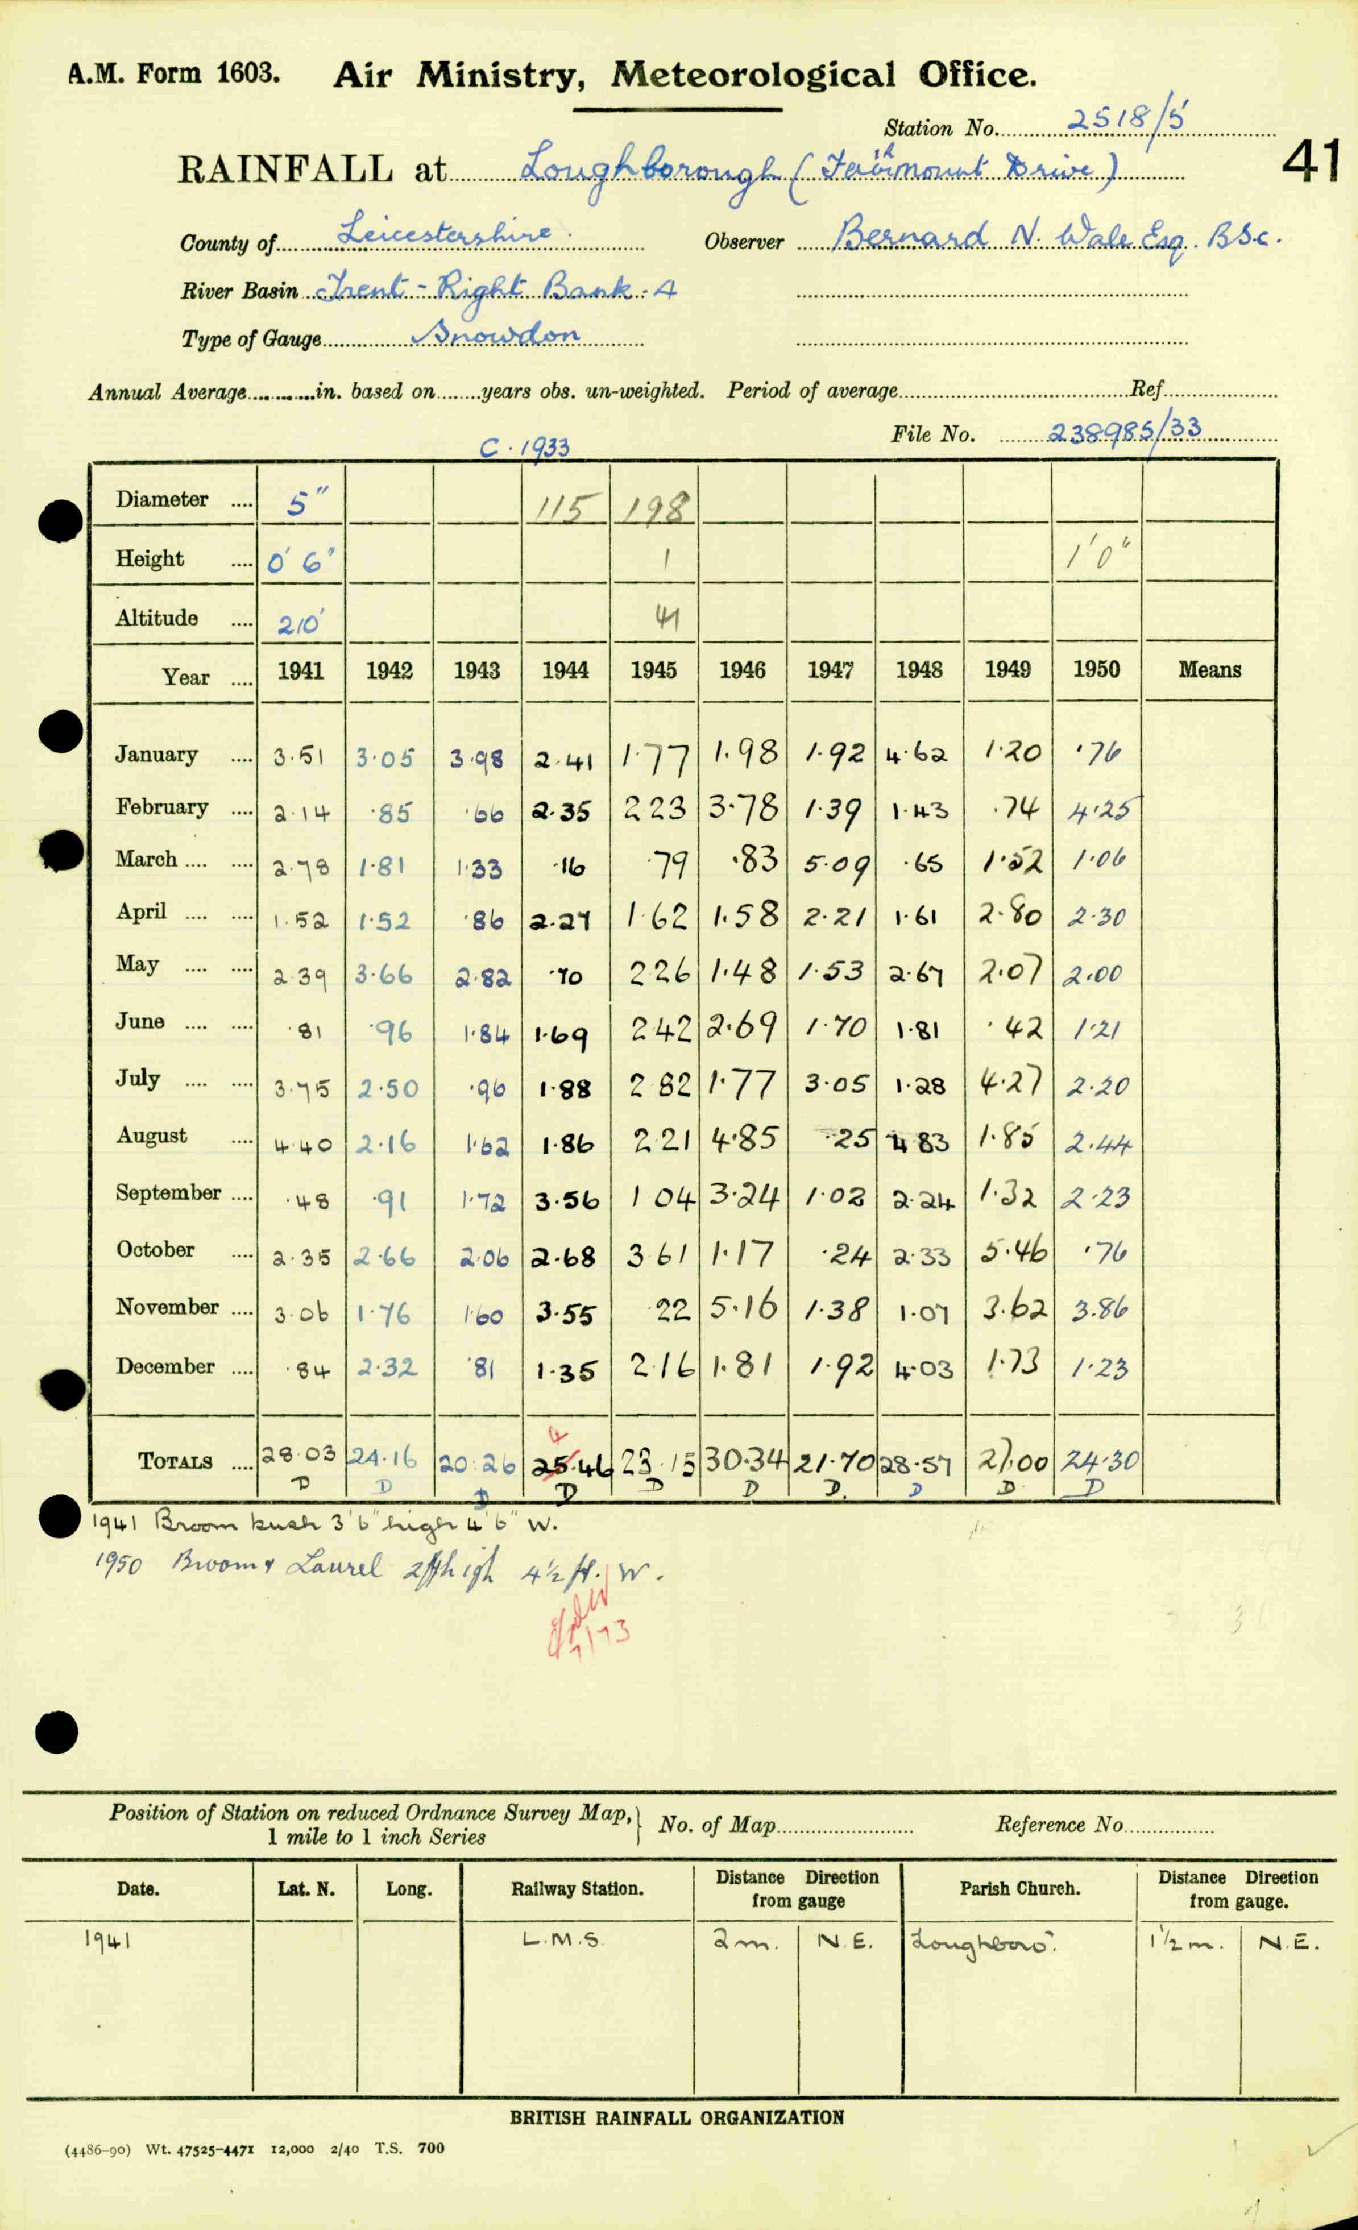 A.M. Form 1603. Air Ministry, Meteorological Office.
Station No. 2518/5
41
RAINFALL at Loughborough (Fairmount Drive)
County of Leicestershire Observer Bernard N. Wale Esq. B.Sc.
River Basin Trent - Right Bank - 4
Type of Gauge Snowdon
Annual Average in. based on years obs. un-weighted. Period of average Ref.
File No. 238985/33
C. 1933
Diameter 5" 115 198
Height 0' 6" 1 1'0"
Altitude 210' 41
Year 1941 1942 1943 1944 1945 1946 1947 1948 1949 1950 Means
January 3.51 3.05 3.98 2.41 1.77 1.98 1.92 4.62 1.20 .76
February 2.14 .85 .66 2.35 2 23 3.78 1.39 1.43 .74 4.25
March 2.78 1.81 1.33 .16 .79 .83 5.09 .65 1.52 1.06
April 1.52 1.52 .86 2.27 1.62 1.58 2.21 1.61 2.80 2.30
May 2.39 3.66 2.82 .70 2 26 1.48 1.53 2.67 2.07 2.00
June .81 .96 1.84 1.69 2 42 2.69 1.70 1.81 .42 1.21
July 3.75 2.50 .96 1.88 2 82 1.77 3.05 1.28 4.27 2.20
August 4.40 2.16 1.62 1.86 2 21 4.85 .25 4 83 1.85 2.44
September .48 .91 1.72 3.56 1 04 3.24 1.02 2.24 1.32 2.23
October 2.35 2.66 2.06 2.68 3 61 1.17 .24 2.33 5.46 .76
November 3.06 1.76 1.60 3.55 .22 5.16 1.38 1.07 3.62 3.86
December .84 2.32 .81 1.35 2.16 1.81 1.92 4.03 1.73 1.23
4
TOTALS 28.03 24.16 20.26 25.46 23.15 30.34 21.70 28.57 27.00 24.30
D D D D D D D D D D
1941 Broom bush 3'6" high 4'6" W.
1950 Broom & Laurel 2ft high 4½ ft. W.
7/73
Position of Station on reduced Ordnance Survey Map, 1 mile to 1 inch Series No. of Map Reference No.
Date. Lat. N. Long. Railway Station. Distance Direction from gauge Parish Church. Distance Direction from gauge.
1941 L.M.S. 2 m. N.E. Loughboro'. 1½ m. N.E.
BRITISH RAINFALL ORGANIZATION
(4486-90) Wt. 47525-4471 12,000 2/40 T.S. 700